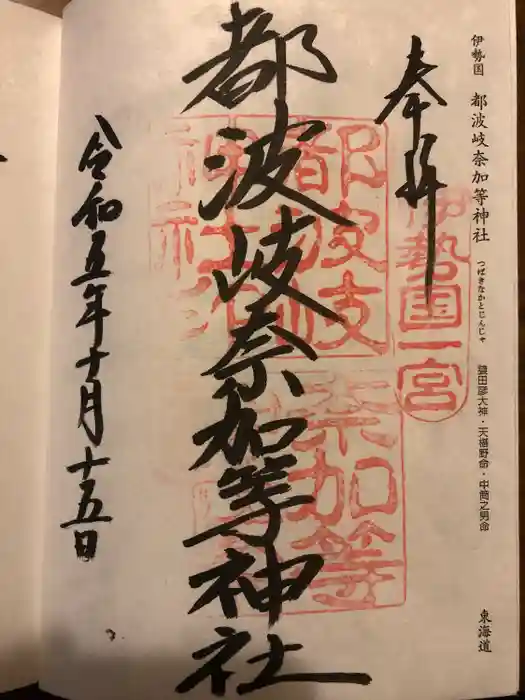 伊勢国 都波岐奈加等神社 つばきなかとじんじゃ 猿田彦大神・天椹野命・中筒之男命 東海道
奉拝
伊勢国一宮
都波岐奈加等神社
都波岐
奈加等
神社
令和五年十月十五日